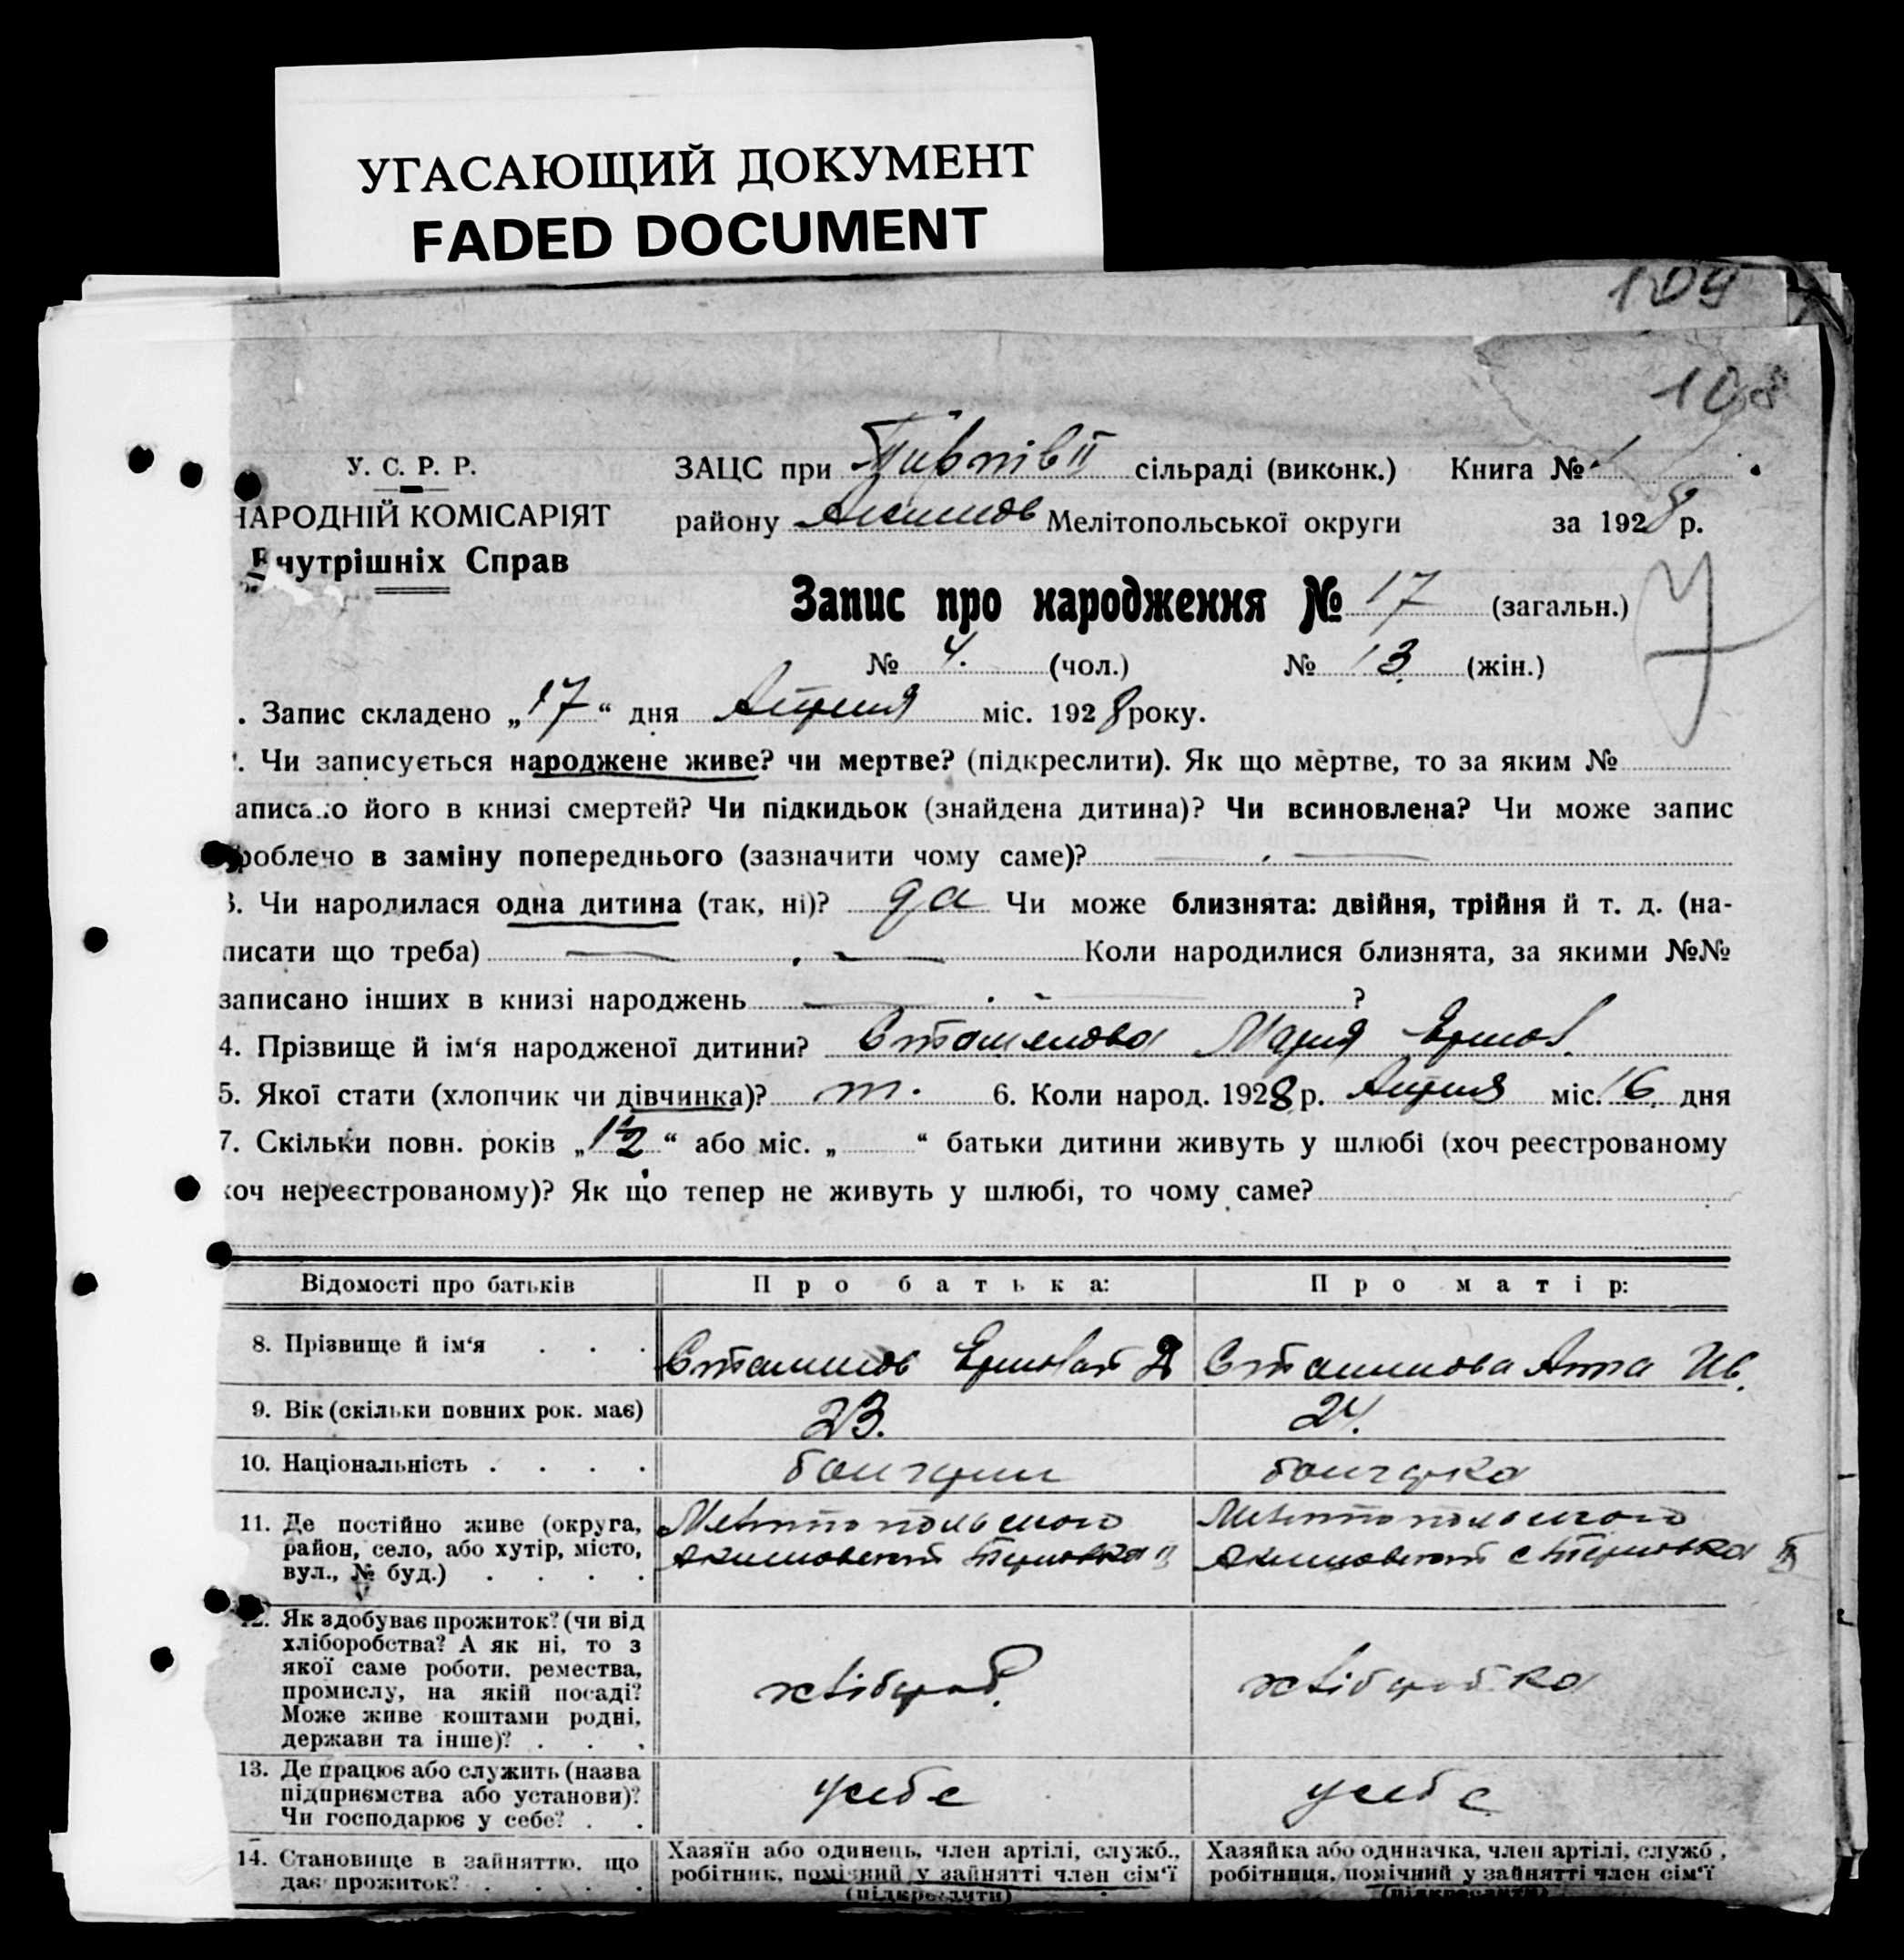 УГАСАЮЩИЙ ДОКУМЕНТ
FADED DOCUMENT
109
108
У. С. Р. Р.
НАРОДНІЙ КОМІСАРІЯТ
Внутрішніх Справ
ЗАЦС при сільраді (виконк.) Книга № 1
району Акимов Мелітопольської округи за 1928 р.
Запис про народження № 17 (загальн.)
№ 4. (чол.) № 13. (жін.)
. Запис складено „17“ дня Апреля міс. 1928 року.
. Чи записується народжене живе? чи мертве? (підкреслити). Як що мертве, то за яким №
аписано його в книзі смертей? Чи підкидьок (знайдена дитина)? Чи всиновлена? Чи може запис
роблено в заміну попереднього (зазначити чому саме)?
3. Чи народилася одна дитина (так, ні)? да Чи може близнята: двійня, трійня й т. д. (на-
писати що треба) Коли народилися близнята, за якими №№
записано інших в книзі народжень ?
4. Прізвище й ім‘я народженої дитини? Мария
5. Якої стати (хлопчик чи дівчинка)? 6. Коли народ. 1928 р. Апреля міс. 16 дня
7. Скільки повн. років „ “ або міс. „ “ батьки дитини живуть у шлюбі (хоч реєстрованому
хоч нереєстрованому)? Як що тепер не живуть у шлюбі, то чому саме?
Відомості про батьків Про батька: Про матір:
8. Прізвище й ім‘я . . .
9. Вік (скільки повних рок. має) 23. 24.
10. Національність . . . . болгарин болгарка
11. Де постійно живе (округа, Мелитопольского Мелитопольского
район, село, або хутір, місто, Акимовский Акимовский с
вул., № буд.) . . . .
12. Як здобуває прожиток? (чи від
хліборобства? А як ні, то з
якої саме роботи, ремества,
промислу, на якій посаді? хлібороб. хліборобка
Може живе коштами родні,
держави та інше)? . . .
13. Де працює або служить (назва
підприємства або установи)? у себе у себе
Чи господарює у себе? . .
14. Становище в зайняттю, що Хазяїн або одинець, член артілі, служб., Хазяйка або одиначка, член артілі, служб.,
дає прожиток? . . . . робітник, помічний у зайнятті член сім‘ї робітниця, помічний у зайнятті член сім‘ї
(підкреслити) (підкреслити)